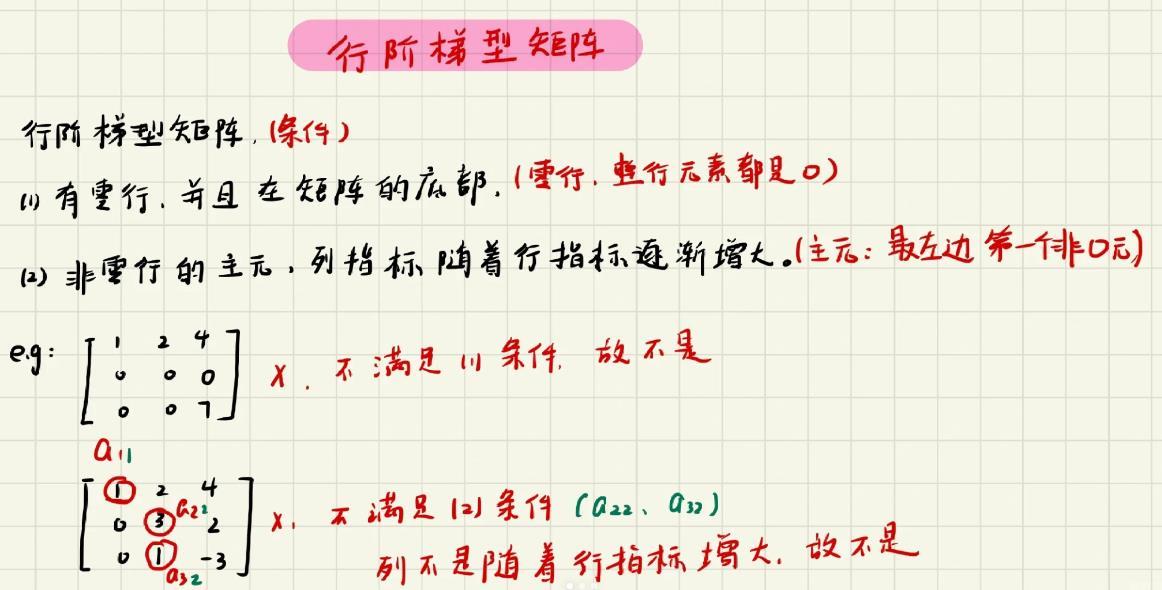 行阶梯型矩阵
行阶梯型矩阵.(条件)
(1) 有零行.并且在矩阵的底部.(零行.整行元素都是0)
(2) 非零行的主元,列指标随着行指标逐渐增大。(主元:最左边第一个非0元)
e.g:
1 2 4
0 0 0
0 0 7
X. 不满足(1)条件, 故不是
a11
1 2 4
0 3 a22 2
0 1 -3
a32
X, 不满足(2)条件 (a22、a32)
列不是随着行指标增大, 故不是